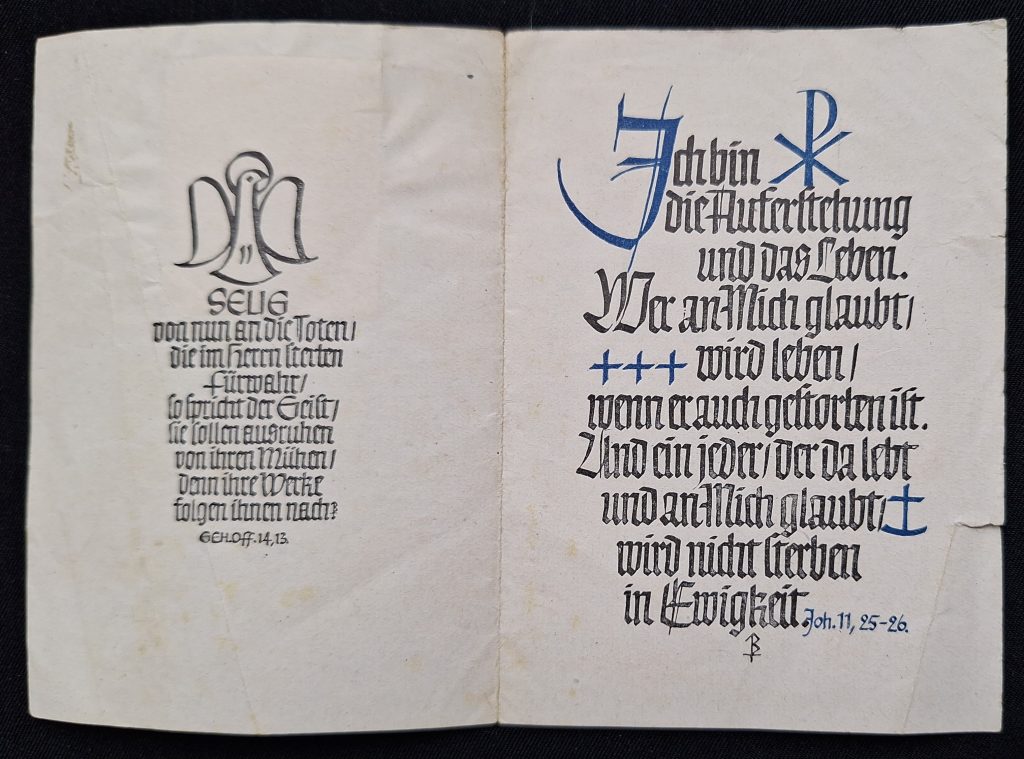 SELIG
von nun an die Toten/
die im Herrn sterben
fürwahr/
so spricht der Geist/
sie sollen ausruhen
von ihren Mühen/
denn ihre Werke
folgen ihnen nach?
GEH.Off. 14,13.
Ich bin
die Auferstehung
und das Leben.
Wer an Mich glaubt/
+++ wird leben/
wenn er auch gestorben ist.
Und ein jeder/der da lebt
und an Mich glaubt/
wird nicht sterben
in Ewigkeit.
Joh. 11, 25-26.